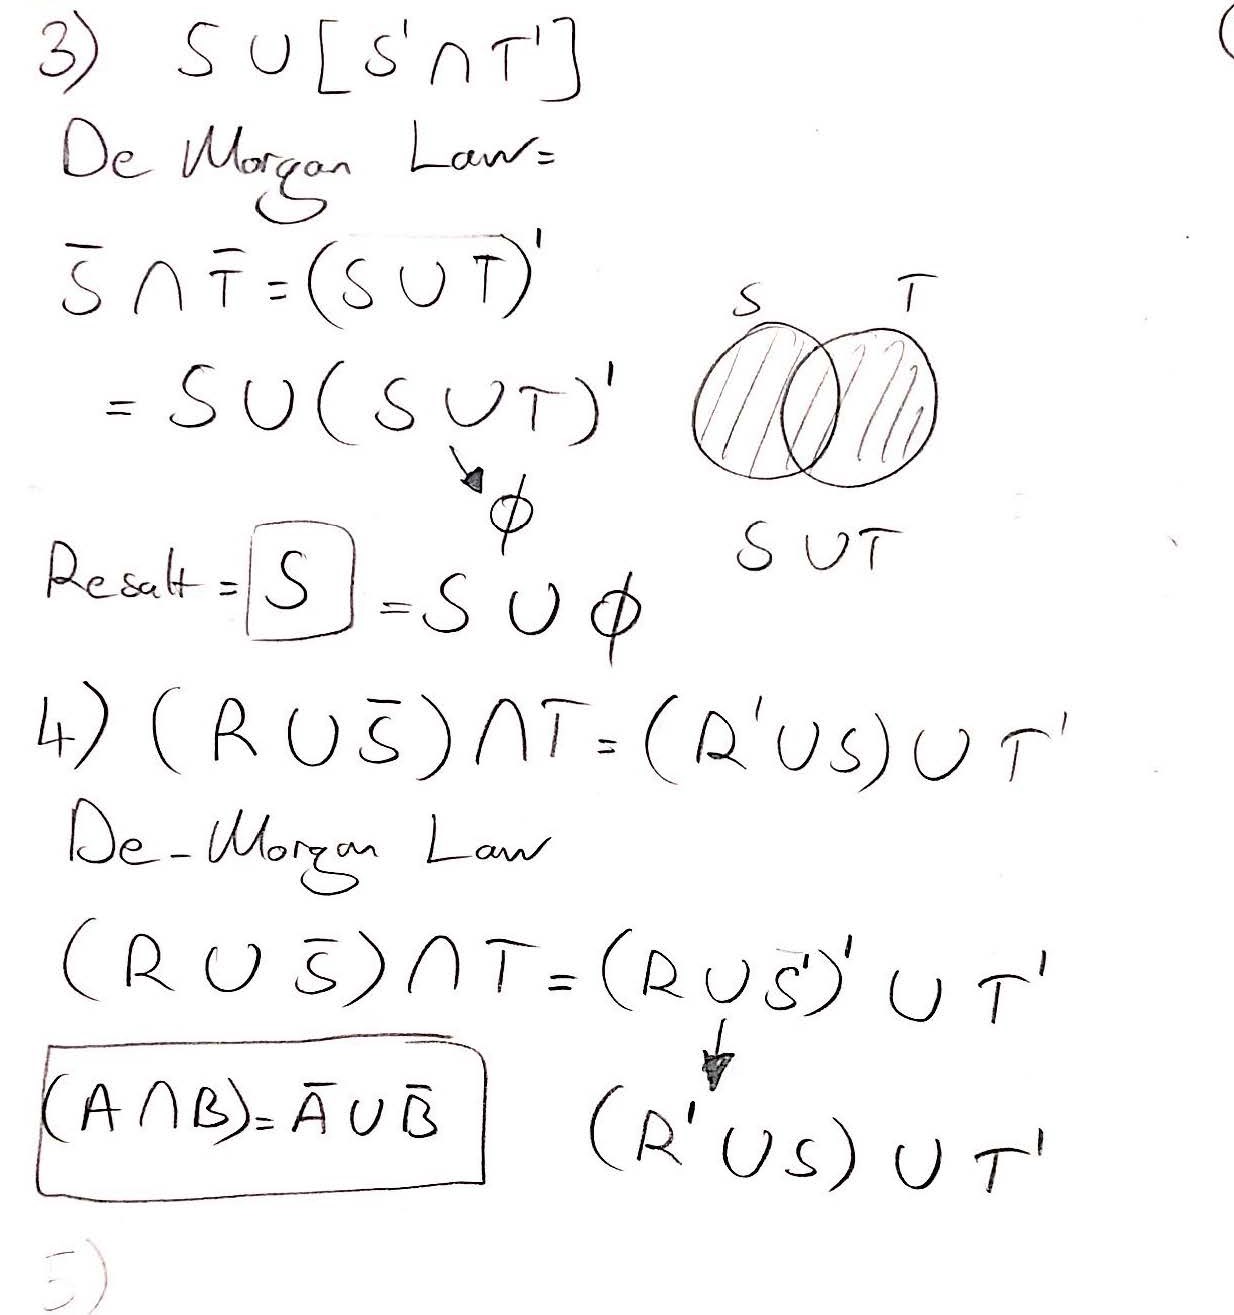 3) S ∪ [S' ∩ T']
De Morgan Law=
S̄ ∩ T̄ = (S ∪ T)'
= S ∪ (S ∪ T)'
ϕ
S T
S ∪ T
Resalt = S = S ∪ ϕ
4) (R ∪ S̄) ∩ T = (R' ∪ S) ∪ T'
De-Morgan Law
(R ∪ S̄) ∩ T = (R ∪ S')' ∪ T'
(A ∩ B) = Ā ∪ B̄
(R' ∪ S) ∪ T'
5)